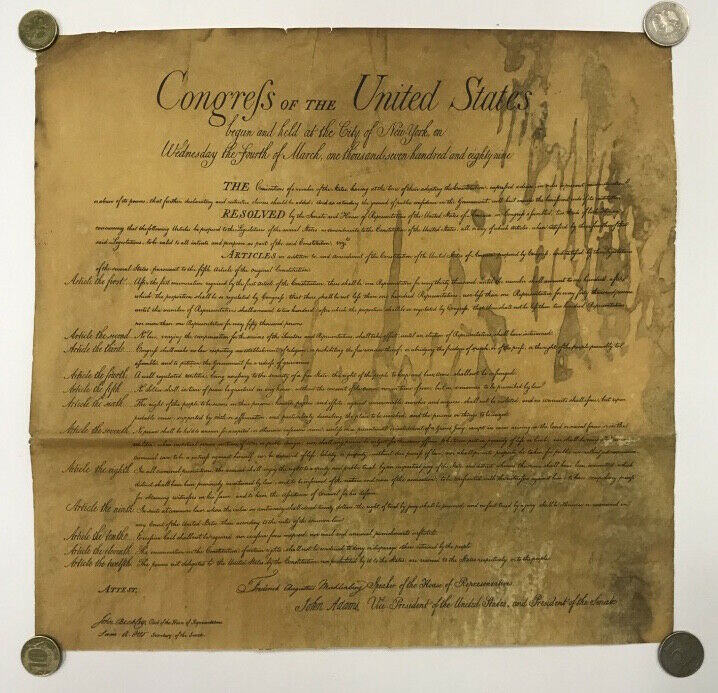 Congreſs OF THE United States
begun and held at the City of New York, on
Wednesday the fourth of March, one thousand seven hundred and eighty nine
THE Conventions of a number of the States having at the time of their adopting the Constitution, expressed a desire, in order to prevent
abuse of its powers, that further declaratory and restrictive clauses should be added: And as extending the ground of public confidence in the Government, will best
RESOLVED by the Senate and House of Representatives of the United States of America in Congreſs aſsembled, two thirds of both Houses
concurring that the following Articles be proposed to the Legislatures of the several States as amendments to the Constitution of the United States, all or any of which Articles, when ratified by three fourths of the
said Legislatures, to be valid to all intents and purposes as part of the said Constitution; viz.t
ARTICLES in addition to, and amendment of the Constitution of the United States of America, proposed by Congreſs, and ratified by the Legislatures
of the several States, pursuant to the fifth Article of the original Constitution.
Article the first. After the first enumeration required by the first Article of the Constitution, there shall be one Representative for every thirty thousand, until the number shall amount to one hundred, after
which the proportion shall be so regulated by Congreſs, that there shall be not leſs than one hundred Representatives, nor leſs than one Representative for every forty thousand persons,
until the number of Representatives shall amount to two hundred, after which the proportion shall be so regulated by Congreſs, that there shall not be leſs than two hundred Representatives,
nor more than one Representative for every fifty thousand persons
Article the second. No law, varying the compensation for the services of the Senators and Representatives, shall take effect, until an election of Representatives shall have intervened.
Article the third. Congreſs shall make no law respecting an establishment of religion, or prohibiting the free exercise thereof; or abridging the freedom of speech, or of the preſs; or the right of the people peaceably to
aſsemble, and to petition the Government for a redreſs of grievances
Article the fourth. A well regulated militia, being neceſsary to the security of a free State, the right of the people to keep and bear arms, shall not be infringed.
Article the fifth. No Soldier shall, in time of peace be quartered in any house, without the consent of the owner, nor in time of war, but in a manner to be prescribed by law
Article the sixth. The right of the people to be secure in their persons, houses, papers, and effects, against unreasonable searches and seizures, shall not be violated, and no warrants shall iſsue, but upon
probable cause, supported by oath or affirmation, and particularly describing the place to be searched, and the persons or things to be seized.
Article the seventh.
Article the eighth. In all criminal prosecutions, the accused shall enjoy the right to a speedy and public trial, by an impartial jury of the State and district wherein the crime shall have been committed, which
district shall have been previously ascertained by law, and to be informed of the nature and cause of the accusation; to be confronted with the witneſses against him; to have compulsory proceſs
for obtaining witneſses in his favor, and to have the aſsistance of Counsel for his defence.
Article the ninth. In suits at common law, where the value in controversy shall exceed twenty dollars, the right of trial by jury shall be preserved, and no fact tried by a jury shall be otherwise re-examined in
any Court of the United States, than according to the rules of the common law.
Article the tenth. Exceſsive bail shall not be required, nor exceſsive fines imposed, nor cruel and unusual punishments inflicted.
Article the eleventh. The enumeration in the Constitution, of certain rights, shall not be construed to deny or disparage others retained by the people
Article the twelfth. The powers not delegated to the United States by the Constitution, nor prohibited by it to the States, are reserved to the States respectively, or to the people
ATTEST,
Frederick Augustus Muhlenberg Speaker of the House of Representatives
John Adams, Vice President of the United States, and President of the Senate
John Beckley, Clerk of the House of Representatives
Sam. A. Otis Secretary of the Senate
10